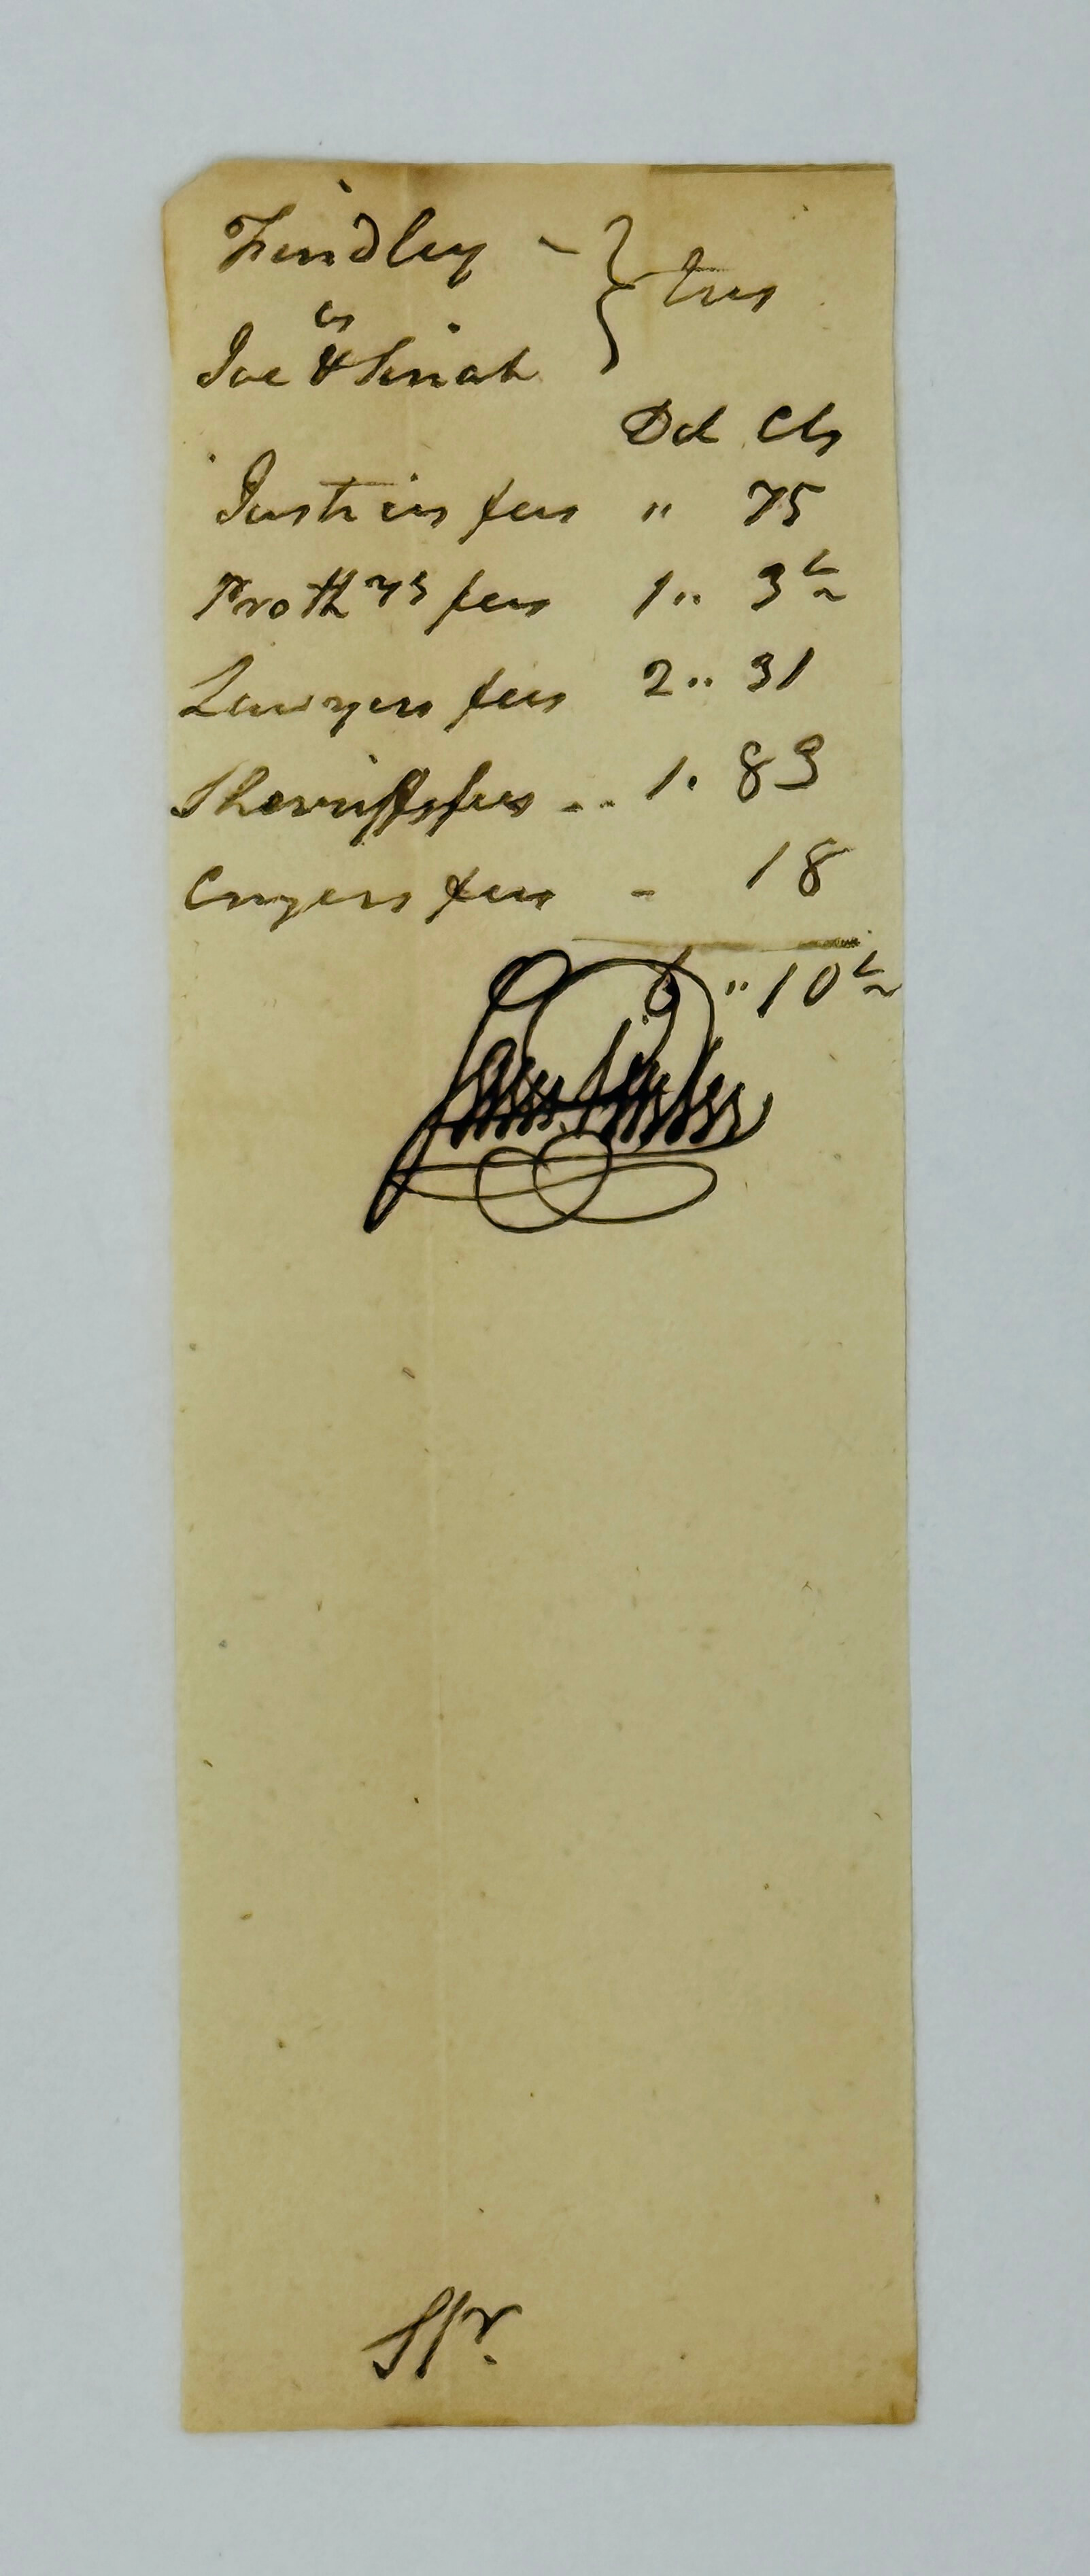 Findley - } fees
vs
Joe & Dinah
Dol Cts
Justices fees " 75
Prothys fees 1 " 3½
Lawyers fees 2 " 31
Sherriffs fees - - 1 . 83
Cryers fees - 18
6 " 10½